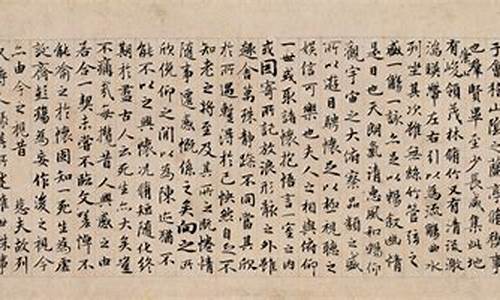 會稽山陰之蘭亭脩稧事
也羣賢畢至少長咸集此地
有崇山峻領茂林脩竹又有清流激
湍暎帶左右引以為流觴曲水
列坐其次雖無絲竹管弦之
盛一觴一詠亦足以暢敘幽情
是日也天朗氣清惠風和暢仰
觀宇宙之大俯察品類之盛
所以遊目騁懷足以極視聽之
娛信可樂也夫人之相與俯仰
一世或取諸懷抱悟言一室之內
或因寄所託放浪形骸之外雖
趣舍萬殊靜躁不同當其欣
於所遇蹔得於己怏然自足不
知老之將至及其所之既惓情
隨事遷感慨係之矣向之所
欣俛仰之間以為陳迹猶不
能不以之興懷況脩短隨化終
期於盡古人云死生亦大矣豈
不痛哉每攬昔人興感之由
若合一契未嘗不臨文嗟悼不
能喻之於懷固知一死生為虛
誕齊彭殤為妄作後之視今
亦由今之視昔 悲夫故列
敘時人錄其所述雖世殊事